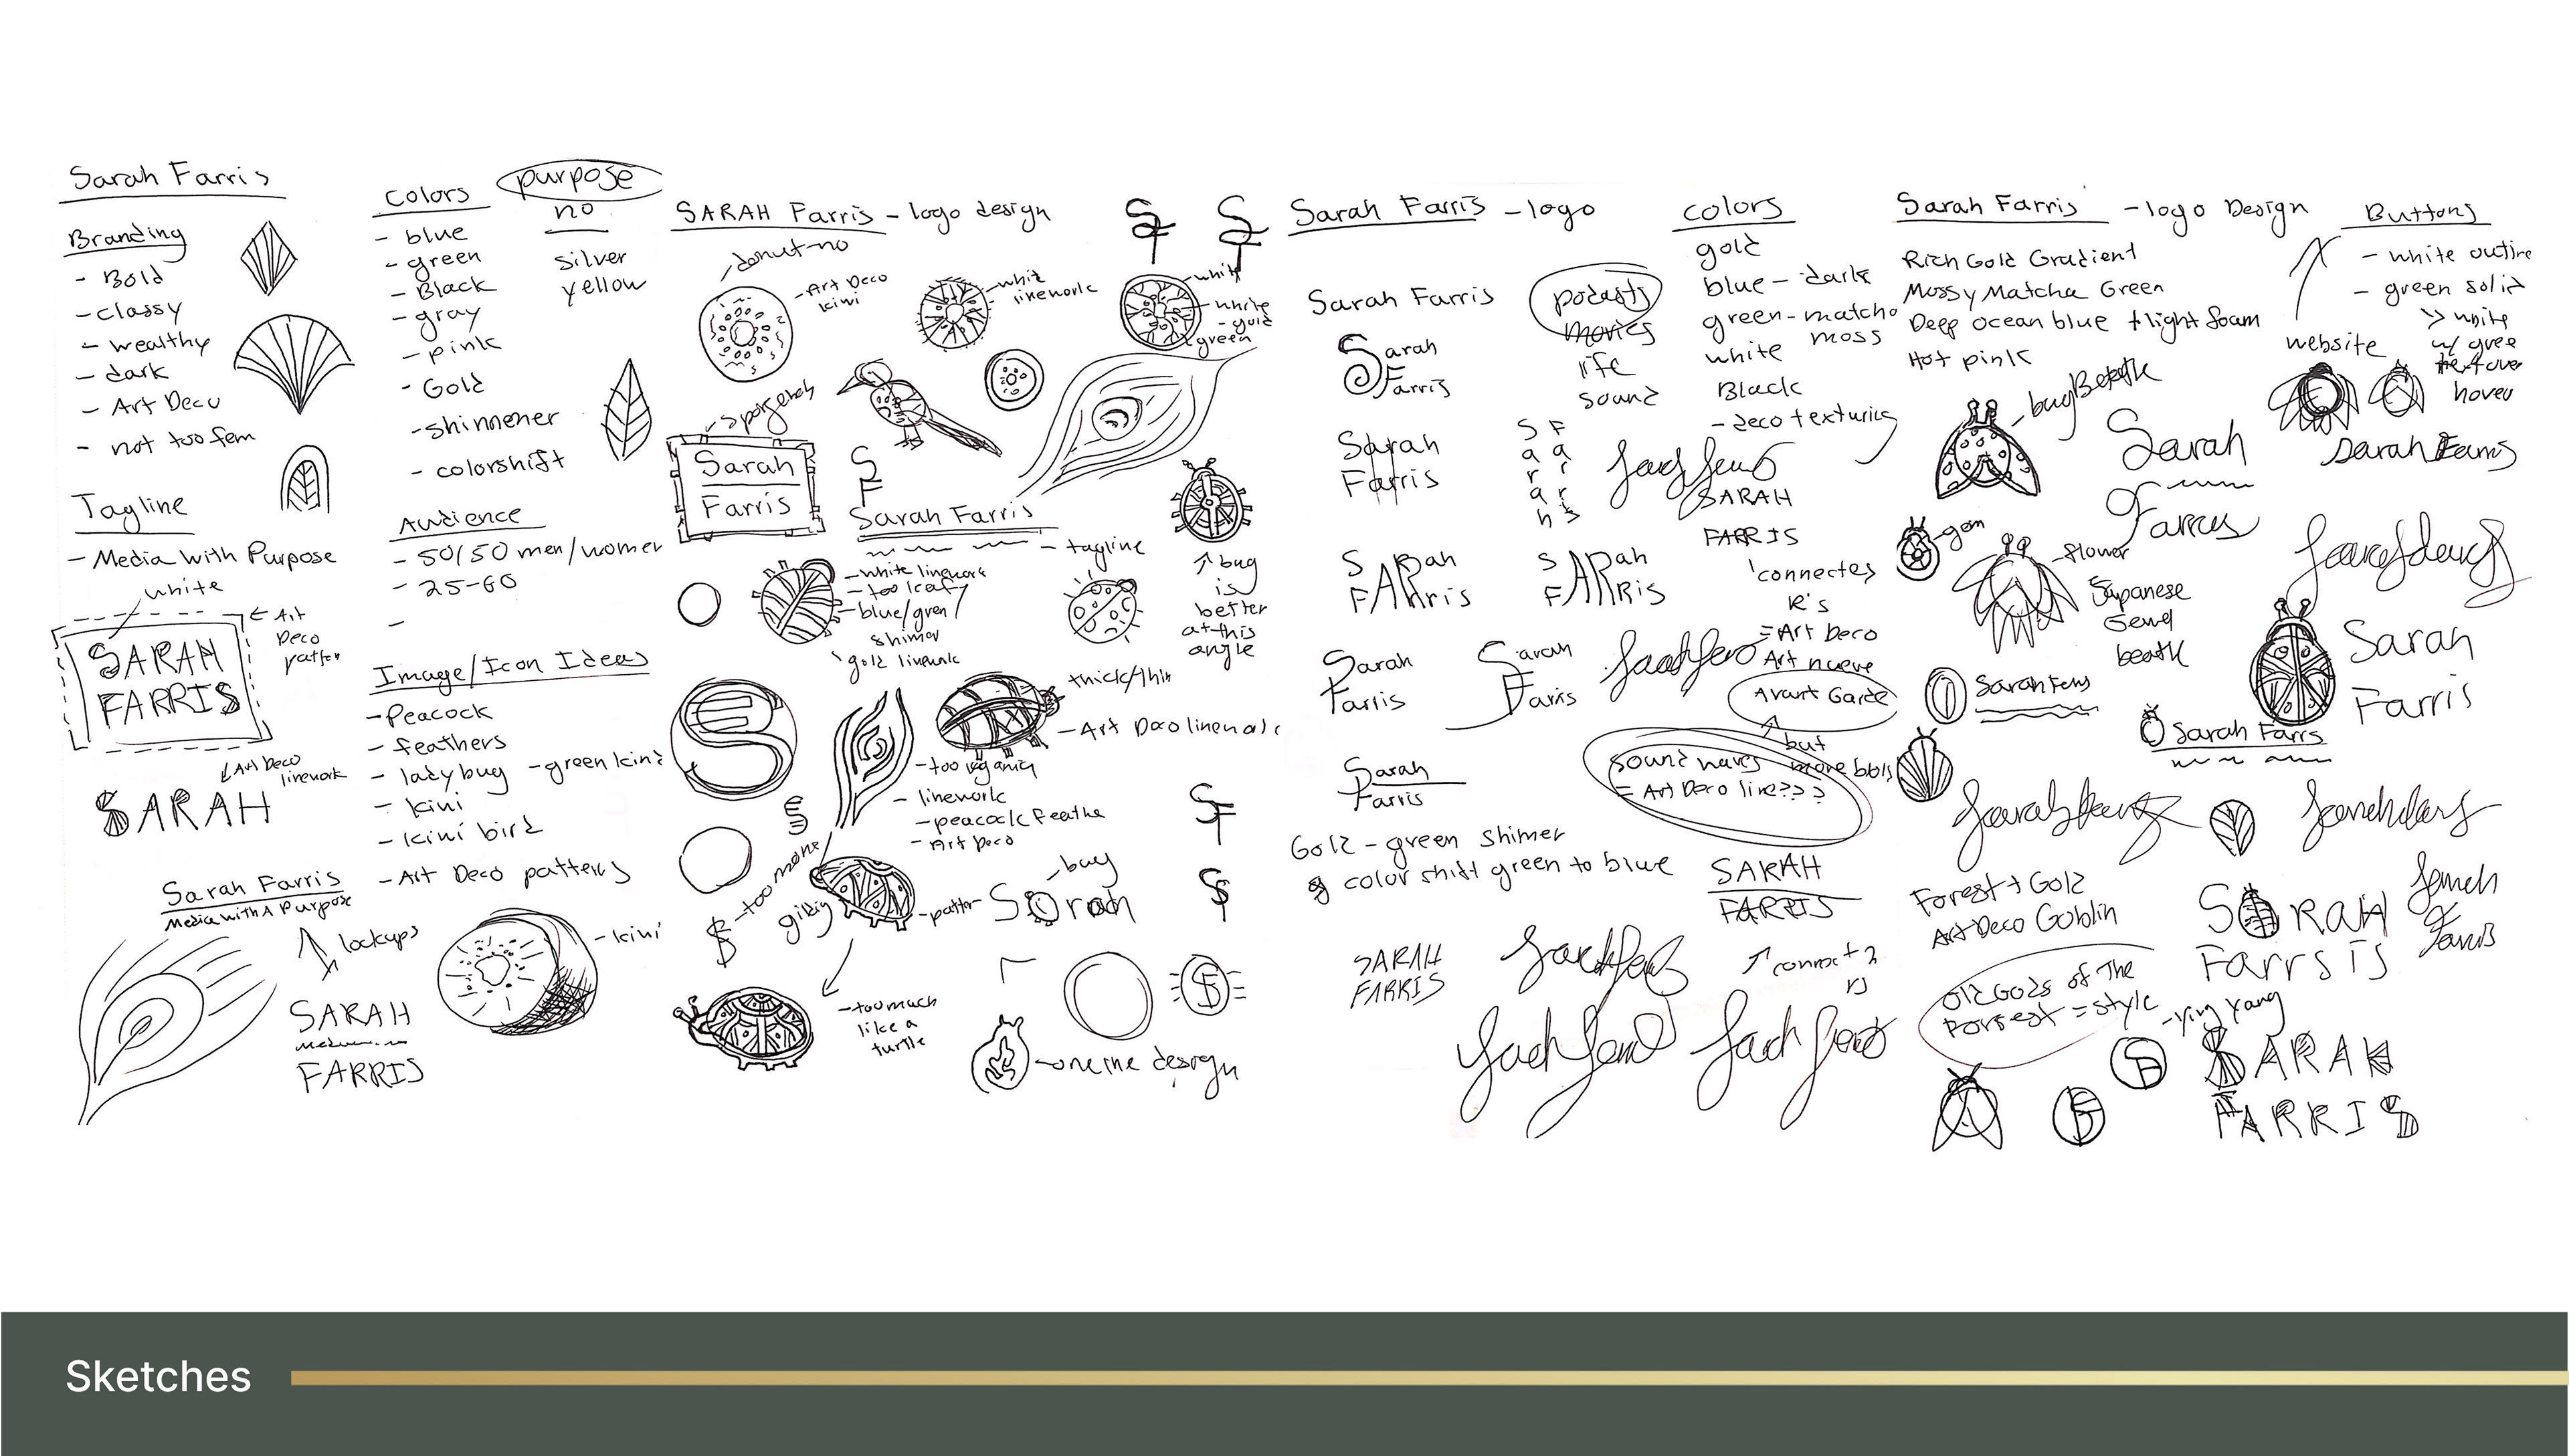 Sarah Farris
Branding
- Bold
- classy
- wealthy
- dark
- Art Deco
- not too fem
Tagline
- Media with Purpose
white
← Art
Deco
SARAH
FARRIS
Art Deco
linework
SARAH
Sarah Farris
Media with A Purpose
lockups
SARAH
FARRIS
colors
- blue
- green
- Black
- gray
- pink
- Gold
- colorshift
purpose
no
silver
yellow
Audience
- 50/50 men/women
- 25-60
-
Image/Icon Ideas
- Peacock
- feathers
- ladybug - green kind
- kiwi
- kiwi bird
- Art Deco patterns
- kiwi
SARAH Farris - logo design
donut-no
- Art Deco
kiwi
linework
- white
- white
- gold
green
Sarah
Farris
S
F
Sarah Farris
- tagline
- white linework
- too leafy
- blue/green/
gold linework
↑ bug
is
better
at this
angle
thick/thin
- Art Deco linework
- too organic
- linework
- peacock feathe
- Art Deco
SF
- too money
$
- bug
Sarah
- too much
like a
turtle
- one line design
Sarah Farris - logo
Sarah Farris
Sarah
Farris
Sarah
Farris
podcasts
movies
life
sound
S F
a a
r r
a r
h s
colors
gold
blue - dark
green - matcha
moss
white
Black
- deco texturing
SARAH
FARRIS
SARah
FARris
SARah
FARRis
connectes
R's
= Art Deco
Avant Garde
but
more bols
Sarah
Farris
Sarah
Farris
sound waves
= Art Deco line???
Sarah
Farris
Gold - green shimer
color shift green to blue
SARAH
FARRIS
SARAH
FARRIS
Sarah Farris - logo Design
Rich Gold Gradient
Mossy Matcha Green
Deep ocean blue + light foam
Hot pink
website
Buttons
- white outline
- green solid
>> white
hover
Sarah
Farris
- gem
- flower
Japanese
Jewel
Sarah
Farris
Sarah Farrs
Forest + Gold
Art Deco Goblin
Old Gods of The
Forrest = style
- ying yang
SaraH
Farrsis
SARAH
FARRIS
Sketches